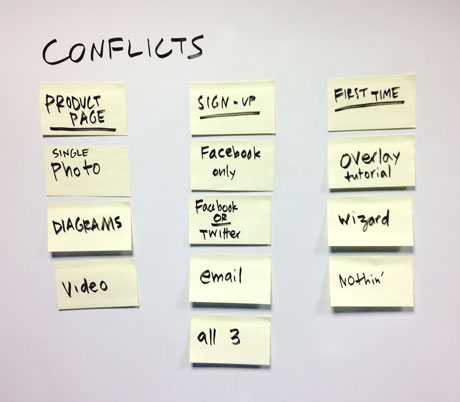 CONFLICTS
PRODUCT
PAGE
SINGLE
Photo
DIAGRAMS
Video
SIGN-UP
Facebook
only
Facebook
OR
Twitter
email
all 3
FIRST TIME
Overlay
tutorial
Wizard
Nothin'